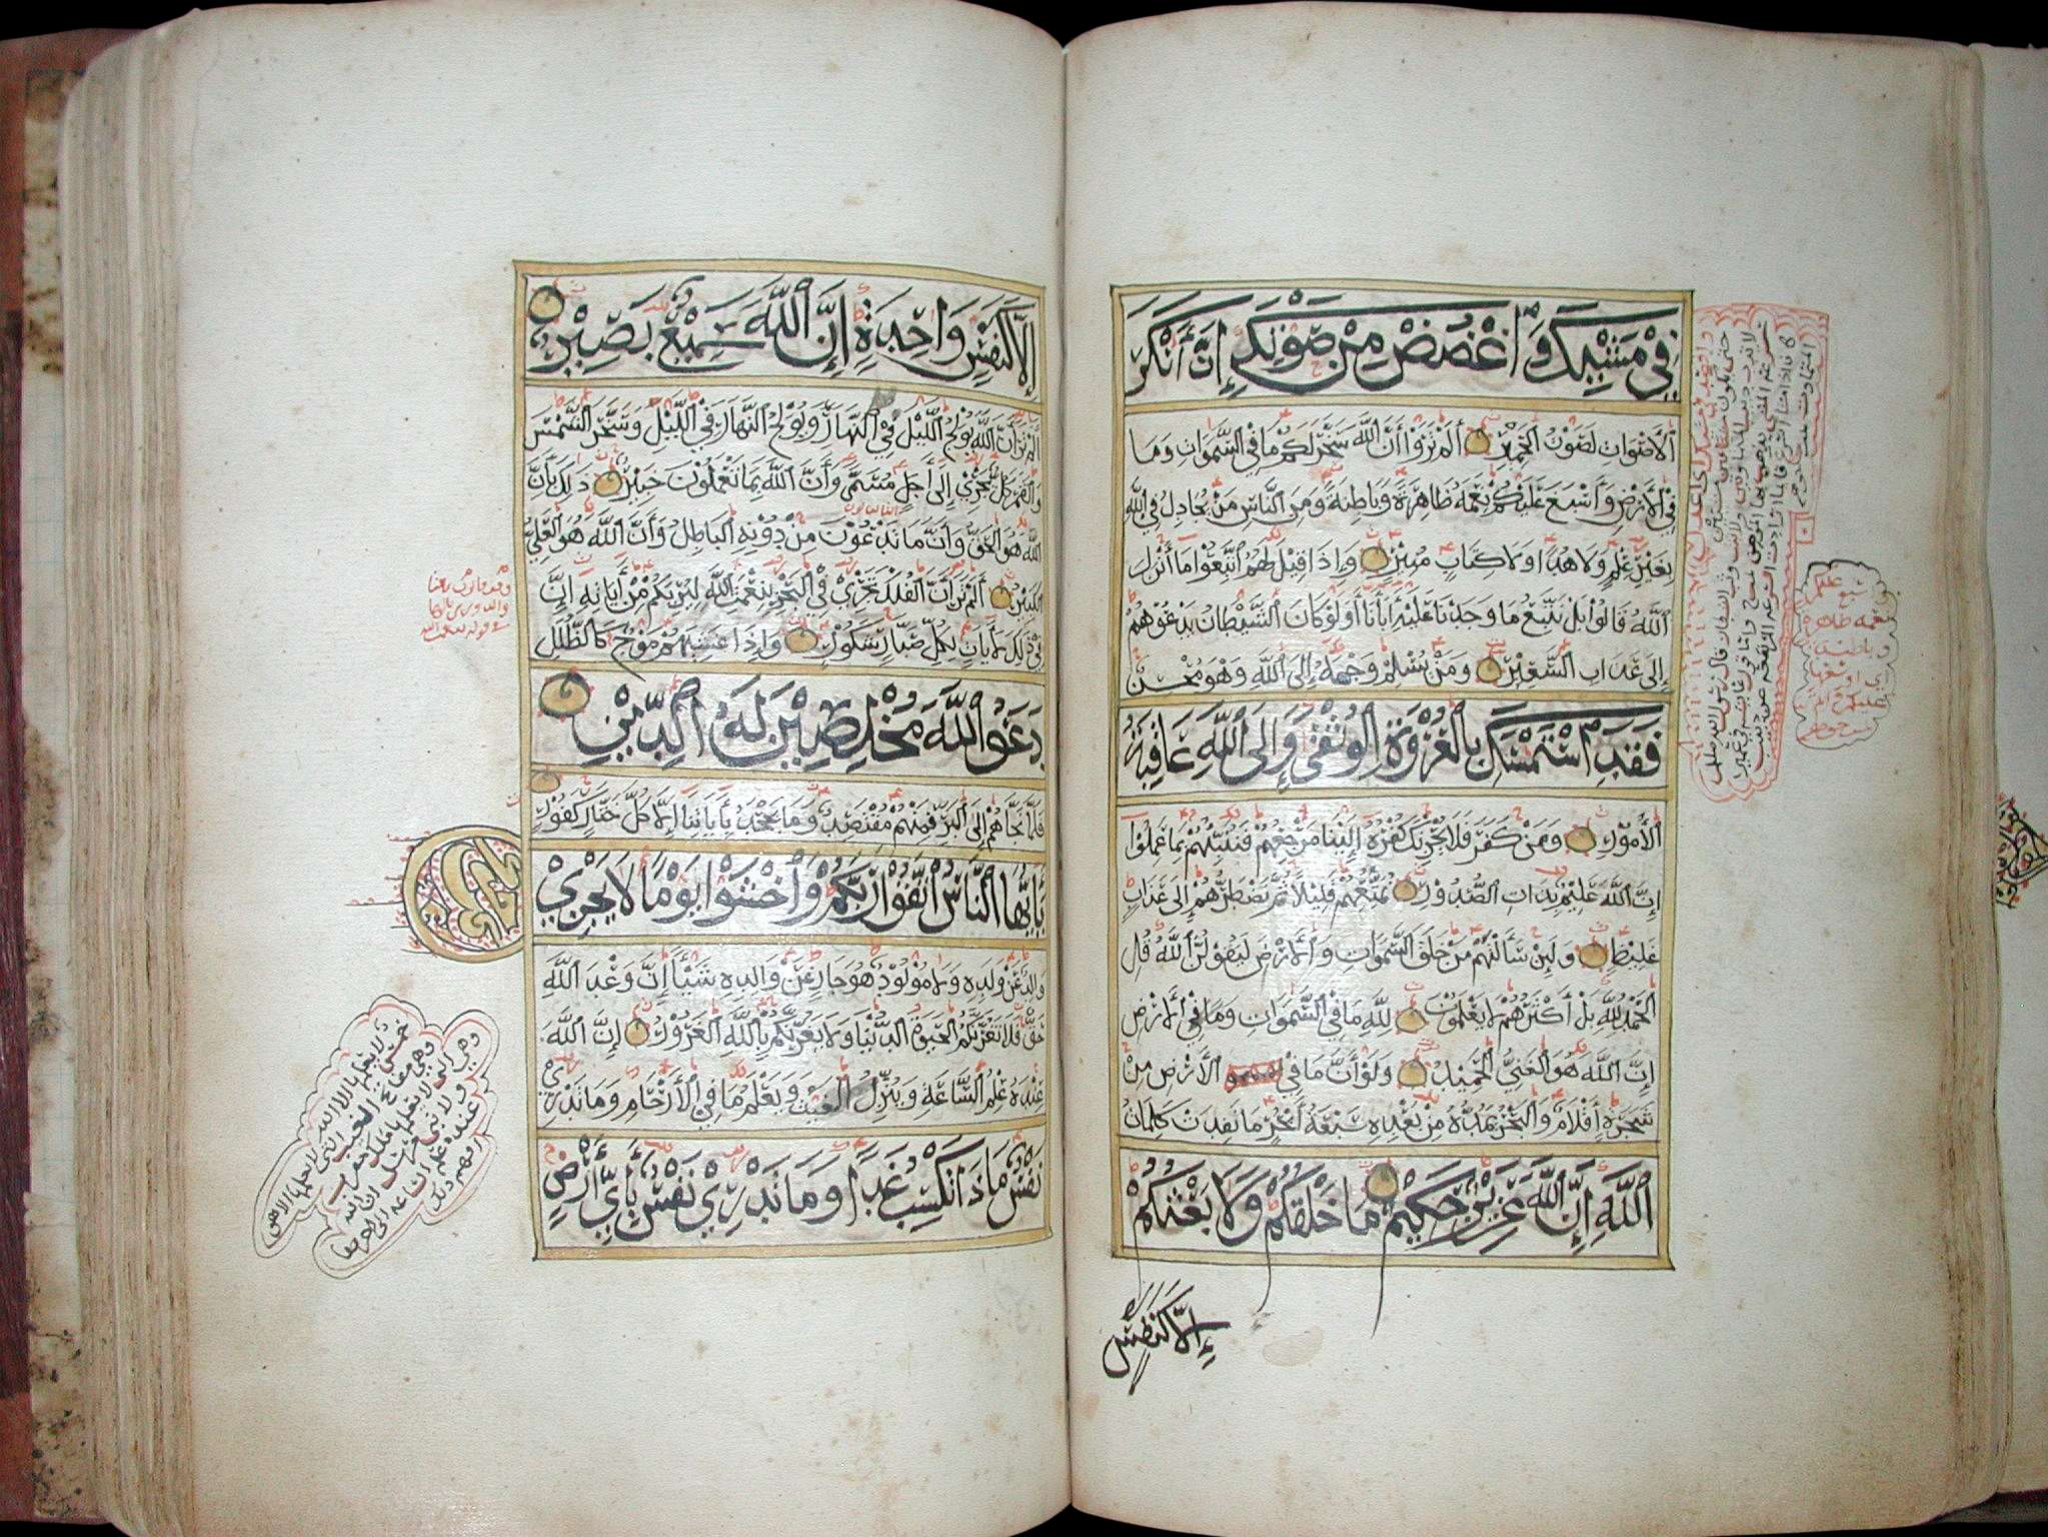 فِي مَشْيِكَ وَاغْضُضْ مِنْ صَوْتِكَ إِنَّ أَنْكَرَ
الْأَصْوَاتِ لَصَوْتُ الْحَمِيرِ أَلَمْ تَرَوْا أَنَّ اللَّهَ سَخَّرَ لَكُمْ مَا فِي السَّمَوَاتِ وَمَا
فِي الْأَرْضِ وَأَسْبَغَ عَلَيْكُمْ نِعَمَهُ ظَاهِرَةً وَبَاطِنَةً وَمِنَ النَّاسِ مَنْ يُجَادِلُ فِي اللَّهِ
بِغَيْرِ عِلْمٍ وَلَا هُدًى وَلَا كِتَابٍ مُنِيرٍ وَإِذَا قِيلَ لَهُمُ اتَّبِعُوا مَا أَنْزَلَ
اللَّهُ قَالُوا بَلْ نَتَّبِعُ مَا وَجَدْنَا عَلَيْهِ أَبَاءَنَا أَوَلَوْ كَانَ الشَّيْطَانُ يَدْعُوهُمْ
إِلَى عَذَابِ السَّعِيرِ وَمَنْ يُسْلِمْ وَجْهَهُ إِلَى اللَّهِ وَهُوَ مُحْسِنٌ
فَقَدِ اسْتَمْسَكَ بِالْعُرْوَةِ الْوُثْقَى وَإِلَى اللَّهِ عَاقِبَةُ
الْأُمُورِ وَمَنْ كَفَرَ فَلَا يَحْزُنْكَ كُفْرُهُ إِلَيْنَا مَرْجِعُهُمْ فَنُنَبِّئُهُمْ بِمَا عَمِلُوا
إِنَّ اللَّهَ عَلِيمٌ بِذَاتِ الصُّدُورِ نُمَتِّعُهُمْ قَلِيلًا ثُمَّ نَضْطَرُّهُمْ إِلَى عَذَابٍ
غَلِيظٍ وَلَئِنْ سَأَلْتَهُمْ مَنْ خَلَقَ السَّمَوَاتِ وَالْأَرْضَ لَيَقُولُنَّ اللَّهُ قُلِ
الْحَمْدُ لِلَّهِ بَلْ أَكْثَرُهُمْ لَا يَعْلَمُونَ لِلَّهِ مَا فِي السَّمَوَاتِ وَمَا فِي الْأَرْضِ
إِنَّ اللَّهَ هُوَ الْغَنِيُّ الْحَمِيدُ وَلَوْ أَنَّ مَا فِي الْأَرْضِ مِنْ
شَجَرَةٍ أَقْلَامٌ وَالْبَحْرُ يَمُدُّهُ مِنْ بَعْدِهِ سَبْعَةُ أَبْحُرٍ مَا نَفِدَتْ كَلِمَاتُ
اللَّهِ إِنَّ اللَّهَ عَزِيزٌ حَكِيمٌ مَا خَلْقُكُمْ وَلَا بَعْثُكُمْ
إِلَّا كَنَفْسٍ
إِلَّا كَنَفْسٍ وَاحِدَةٍ إِنَّ اللَّهَ سَمِيعٌ بَصِيرٌ
أَلَمْ تَرَ أَنَّ اللَّهَ يُولِجُ اللَّيْلَ فِي النَّهَارِ وَيُولِجُ النَّهَارَ فِي اللَّيْلِ وَسَخَّرَ الشَّمْسَ
وَالْقَمَرَ كُلٌّ يَجْرِي إِلَى أَجَلٍ مُسَمًّى وَأَنَّ اللَّهَ بِمَا تَعْمَلُونَ خَبِيرٌ ذَلِكَ بِأَنَّ
اللَّهَ هُوَ الْحَقُّ وَأَنَّ مَا تَدْعُونَ مِنْ دُونِهِ الْبَاطِلُ وَأَنَّ اللَّهَ هُوَ الْعَلِيُّ
الْكَبِيرُ أَلَمْ تَرَ أَنَّ الْفُلْكَ تَجْرِي فِي الْبَحْرِ بِنِعْمَتِ اللَّهِ لِيُرِيَكُمْ مِنْ أَيَاتِهِ إِنَّ
فِي ذَلِكَ لَأَيَاتٍ لِكُلِّ صَبَّارٍ شَكُورٍ وَإِذَا غَشِيَهُمْ مَوْجٌ كَالظُّلَلِ
دَعَوُا اللَّهَ مُخْلِصِينَ لَهُ الدِّينَ
فَلَمَّا نَجَّاهُمْ إِلَى الْبَرِّ فَمِنْهُمْ مُقْتَصِدٌ وَمَا يَجْحَدُ بِأَيَاتِنَا إِلَّا كُلُّ خَتَّارٍ كَفُورٍ
يَأَيُّهَا النَّاسُ اتَّقُوا رَبَّكُمْ وَاخْشَوْا يَوْمًا لَا يَجْزِي
وَالِدٌ عَنْ وَلَدِهِ وَلَا مَوْلُودٌ هُوَ جَازٍ عَنْ وَالِدِهِ شَيْئًا إِنَّ وَعْدَ اللَّهِ
حَقٌّ فَلَا تَغُرَّنَّكُمُ الْحَيَوةُ الدُّنْيَا وَلَا يَغُرَّنَّكُمْ بِاللَّهِ الْغَرُورُ إِنَّ اللَّهَ
عِنْدَهُ عِلْمُ السَّاعَةِ وَيُنَزِّلُ الْغَيْثَ وَيَعْلَمُ مَا فِي الْأَرْحَامِ وَمَا تَدْرِي
نَفْسٌ مَاذَا تَكْسِبُ غَدًا وَمَا تَدْرِي نَفْسٌ بِأَيِّ أَرْضٍ